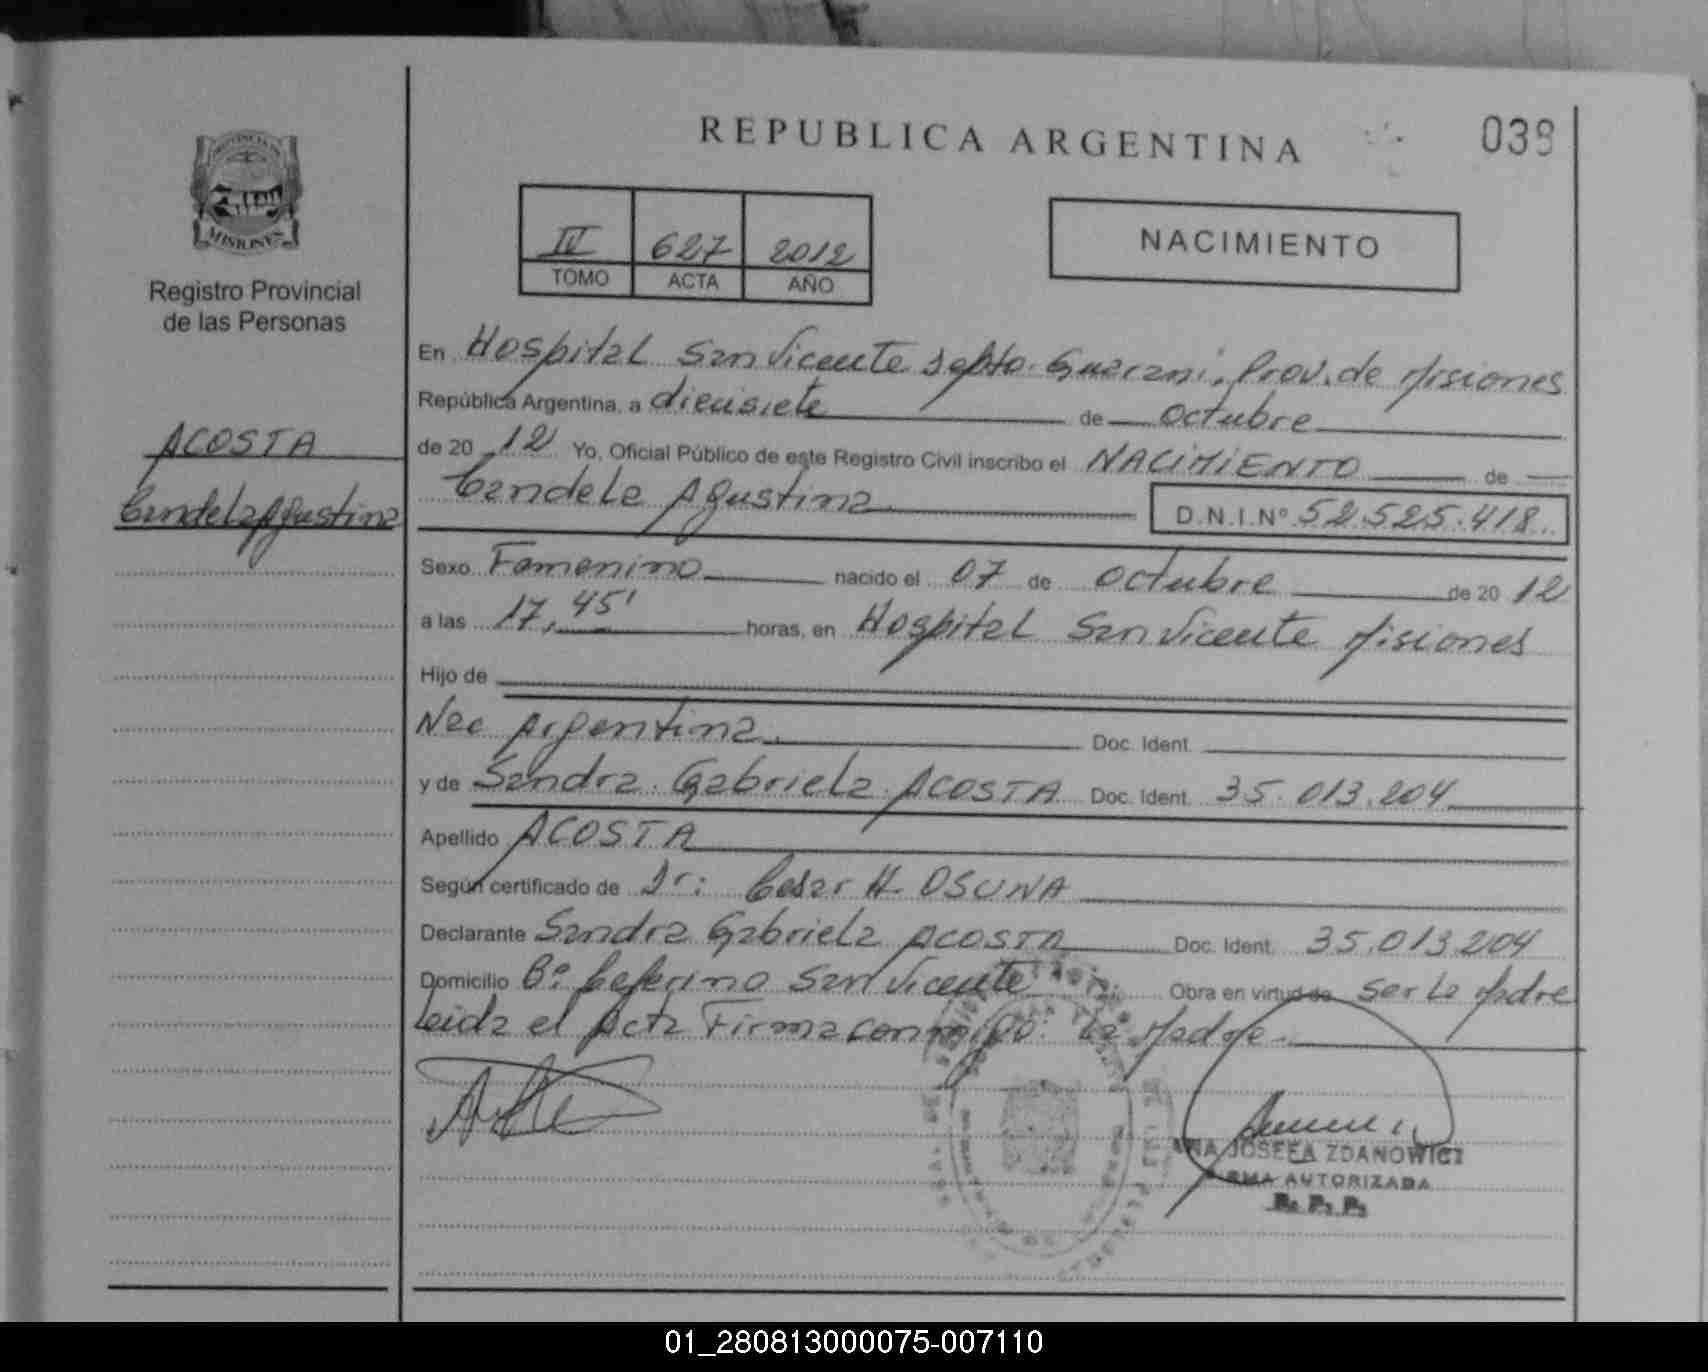 REPUBLICA ARGENTINA
038
PROVINCIA DE
MISIONES
Registro Provincial
de las Personas
IV 627 2012
TOMO ACTA AÑO
NACIMIENTO
ACOSTA
Candela Agustina
En Hospital San Vicente Depto. Guarani, Prov. de Misiones
República Argentina, a diecisiete de octubre
de 20 12 Yo, Oficial Público de este Registro Civil inscribo el NACIMIENTO de
Candela Agustina D.N.I.Nº 52.525.418
Sexo Femenino nacido el 07 de octubre de 20 12
a las 17,45' horas, en Hospital San Vicente Misiones
Hijo de
Nac Argentina. Doc. Ident.
y de Sandra Gabriela ACOSTA Doc. Ident. 35.013.204
Apellido ACOSTA
Según certificado de Dr: Cesar H. OSUNA
Declarante Sandra Gabriela ACOSTA Doc. Ident. 35.013.204
Domicilio Bº Ceferino San Vicente Obra en virtud de ser la Madre
Leida el Acta Firma conmigo: La Madre.-
JOSEFA ZDANOWICZ
AUTORIZADA
R. P. P.
01_280813000075-007110